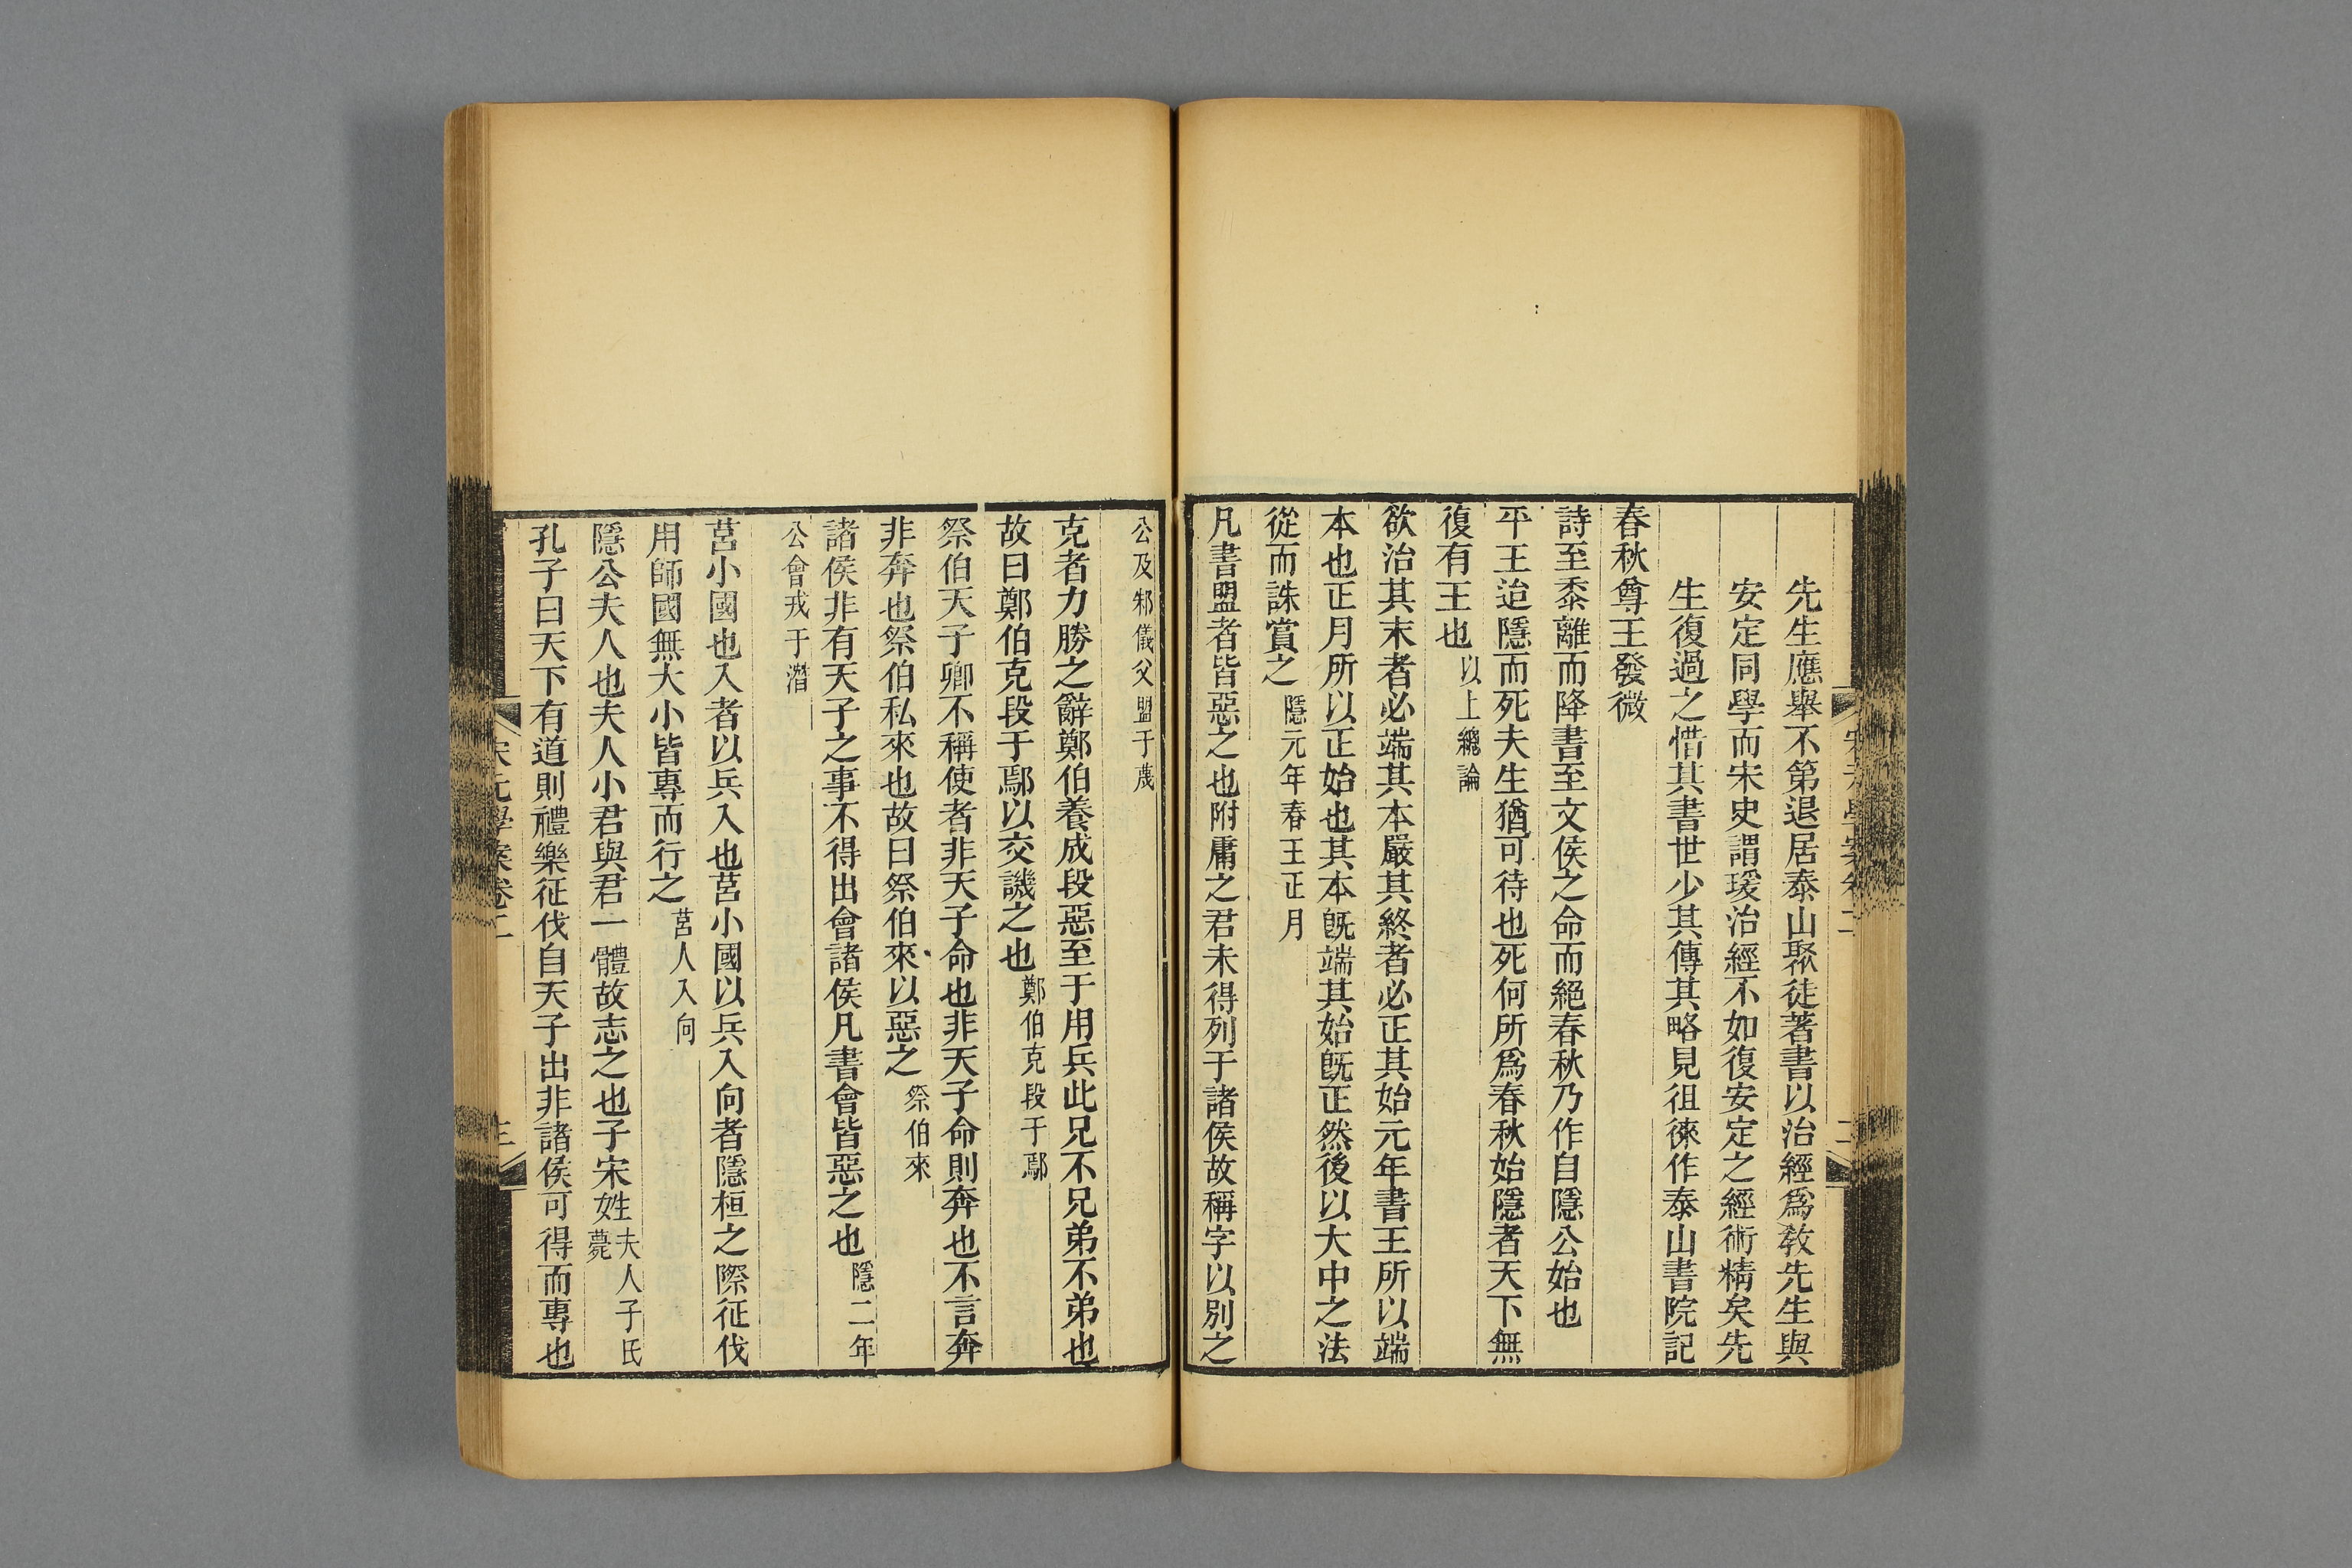 先生應舉不第退居泰山聚徒著書以治經爲敎先生與
安定同學而宋史謂瑗治經不如復安定之經術精矣先
生復過之惜其書世少其傳其略見徂徠作泰山書院記
春秋尊王發微
詩至黍離而降書至文侯之命而絕春秋乃作自隱公始也
平王迨隱而死夫生猶可待也死何所爲春秋始隱者天下無
復有王也以上總論
欲治其末者必端其本嚴其終者必正其始元年書王所以端
本也正月所以正始也其本旣端其始旣正然後以大中之法
從而誅賞之隱元年春王正月
凡書盟者皆惡之也附庸之君未得列于諸侯故稱字以別之
公及邾儀父盟于蔑
克者力勝之辭鄭伯養成段惡至于用兵此兄不兄弟不弟也
故曰鄭伯克段于鄢以交譏之也鄭伯克段于鄢
祭伯天子卿不稱使者非天子命也非天子命則奔也不言奔
非奔也祭伯私來也故曰祭伯來以惡之祭伯來
諸侯非有天子之事不得出會諸侯凡書會皆惡之也隱二年
公會戎于潛
莒小國也入者以兵入也莒小國以兵入向者隱桓之際征伐
用師國無大小皆專而行之莒人入向
隱公夫人也夫人小君與君一體故志之也子宋姓夫人子氏薨
孔子曰天下有道則禮樂征伐自天子出非諸侯可得而專也
宋元學案卷二
三